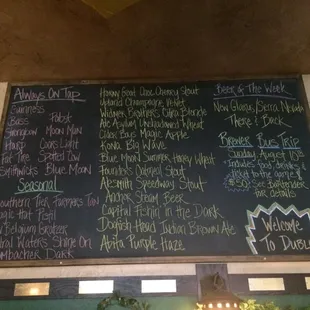 Always On Tap
Guinness
Bass Pabst
Strongbow Moon Man
Harp Coors Light
Fat Tire Spotted Cow
Smithwicks Blue Moon
Seasonal
Southern Tier Farmers Tan
Magic Hat
Belgium Brrrzel
Central Waters Shine On
Dark
Horny Goat Cherry Stout
Upland Champagne Velvet
Widmer Brothers Citra Blonde
Ale Asylum Unshadowed Wheat
Magic Apple
Kona Big Wave
Blue Moon Summer Honey Wheat
Founders Oatmeal Stout
AleSmith Speedway Stout
Anchor Steam Beer
Capital Fishin' in the Dark
Dogfish Head Indian Brown Ale
Abita Purple Haze
Beer of The Week
New Glarus/Sierra Nevada
There & Back
Brewer Bus Trip
Sunday August
Includes food, drinks,
ticket to the game
$50 See Bartender
for details
Welcome
To Dublin